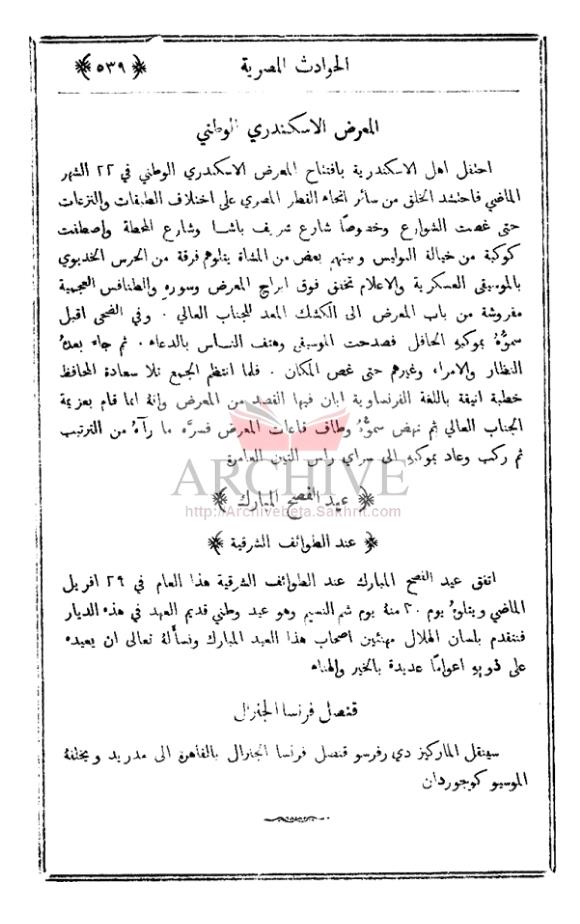 الحوادث المصرية ﴿ ٥٣٩ ﴾
المعرض الاسكندري الوطني
احتفل اهل الاسكندرية بافتتاح المعرض الاسكندري الوطني في ٢٢ الشهر
الماضي فاحتشد الخلق من سائر انحاء القطر المصري على اختلاف الطبقات والنزعات
حتى غصت الشوارع وخصوصًا شارع شريف باشا وشارع المحطة واصطفت
كوكبة من خيالة البوليس وبينهم بعض من المشاة يتلوهم فرقة من الحرس الخديوي
بالموسيقى العسكرية والاعلام تخفق فوق ابراج المعرض وسوره والطنافس العجمية
مفروشة من باب المعرض الى الكشك المعد للجناب العالي . وفي الضحى اقبل
سموُّه بموكبهِ الحافل فصدحت الموسيقى وهتف الناس بالدعاء . ثم جاء بعدهُ
النظار والامراء وغيرهم حتى غص المكان . فلما انتظم الجمع تلا سعادة المحافظ
خطبة انيقة باللغة الفرنساوية ابان فيها القصد من المعرض وانهُ انما قام بعزيمة
الجناب العالي ثم نهض سموُّهُ وطاف قاعات المعرض فسرَّه ما رآهُ من الترتيب
ثم ركب وعاد بموكبهِ الى سراي راس التين العامرة
ARCHIVE
﴿ عيد الفصح المبارك ﴾
http://Archivebeta.Sakhrit.com
﴿ عند الطوائف الشرقية ﴾
اتفق عيد الفصح المبارك عند الطوائف الشرقية هذا العام في ٢٩ افريل
الماضي ويتلوهُ يوم ٣٠ منهُ يوم شم النسيم وهو عيد وطني قديم العهد في هذه الديار
فنتقدم بلسان الهلال مهنئين اصحاب هذا العيد المبارك ونسألهُ تعالى ان يعيده
على ذويهِ اعوامًا عديدة بالخير والهناء
قنصل فرنسا الجنرال
سينقل الماركيز دي رفرسو قنصل فرنسا الجنرال بالقاهرة الى مدريد ويخلفهُ
الموسيو كوجوردان